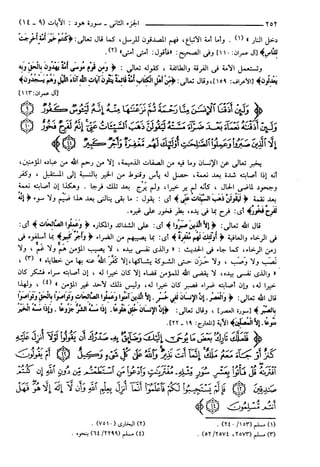 ٢٥٢ الجزء الثاني - سورة هود : الآيات (٩ - ١٤)
دخل النار » (١). وأما أمة الأتباع، فهم المصدقون للرسل، كما قال تعالى: ﴿كُنتُمْ خَيْرَ أُمَّةٍ أُخْرِجَتْ
لِلنَّاسِ﴾ [آل عمران: ١١٠] وفي الصحيح: «فأقول: أمتي أمتي» (٢).
وتستعمل الأمة في الفرقة والطائفة ، كقوله تعالى : ﴿ وَمِن قَوْمِ مُوسَىٰ أُمَّةٌ يَهْدُونَ بِالْحَقِّ وَبِهِ
يَعْدِلُونَ﴾ [الأعراف: ١٥٩]، وقال تعالى: ﴿مِّنْ أَهْلِ الْكِتَابِ أُمَّةٌ قَائِمَةٌ يَتْلُونَ آيَاتِ اللَّهِ آنَاءَ اللَّيْلِ وَهُمْ يَسْجُدُونَ﴾
[آل عمران: ١١٣]
وَلَئِنْ أَذَقْنَا الْإِنسَانَ مِنَّا رَحْمَةً ثُمَّ نَزَعْنَاهَا مِنْهُ إِنَّهُ لَيَئُوسٌ كَفُورٌ ۝
وَلَئِنْ أَذَقْنَاهُ نَعْمَاءَ بَعْدَ ضَرَّاءَ مَسَّتْهُ لَيَقُولَنَّ ذَهَبَ السَّيِّئَاتُ عَنِّي إِنَّهُ لَفَرِحٌ فَخُورٌ ۝
إِلَّا الَّذِينَ صَبَرُوا وَعَمِلُوا الصَّالِحَاتِ أُولَٰئِكَ لَهُم مَّغْفِرَةٌ وَأَجْرٌ كَبِيرٌ ۝
يخبر تعالى عن الإنسان وما فيه من الصفات الذميمة، إلا من رحم الله من عباده المؤمنين،
أنه إذا أصابته شدة بعد نعمة، حصل له يأس وقنوط من الخير بالنسبة إلى المستقبل ، وكفر
وجحود لماضي الحال، كأنه لم ير خيرا، ولم يرج بعد ذلك فرجا . وهكذا إن أصابته نعمة
بعد نقمة ﴿ لَيَقُولَنَّ ذَهَبَ السَّيِّئَاتُ عَنِّي ﴾ أي: يقول : ما بقي ينالني بعد هذا ضيم ولا سوء، ﴿إِنَّهُ
لَفَرِحٌ فَخُورٌ﴾ أي: فرح بما في يده، بطر فخور على غيره.
قال الله تعالى: ﴿إِلَّا الَّذِينَ صَبَرُوا﴾ أي: على الشدائد والمكاره ﴿وَعَمِلُوا الصَّالِحَاتِ ﴾ أي:
في الرخاء والعافية ﴿ أُولَٰئِكَ لَهُم مَّغْفِرَةٌ ﴾ أي: بما يصيبهم من الضراء ﴿ وَأَجْرٌ كَبِيرٌ ﴾ بما أسلفوه في
زمن الرخاء، كما جاء في الحديث : «والذي نفسي بيده ، لا يصيب المؤمن هم ولا غم ، ولا
نصب ولا وصب ، ولا حزن حتى الشوكة يشاكها، إلا كفر الله عنه بها من خطاياه» (٣) ،
«والذي نفسي بيده، لا يقضي الله للمؤمن قضاء إلا كان خيرا له ، إن أصابته سراء فشكر كان
خيرا له، وإن أصابته ضراء فصبر كان خيرا له، وليس ذلك لأحد غير المؤمن» (٤) ، ولهذا
قال الله تعالى: ﴿ وَالْعَصْرِ . إِنَّ الْإِنسَانَ لَفِي خُسْرٍ . إِلَّا الَّذِينَ آمَنُوا وَعَمِلُوا الصَّالِحَاتِ وَتَوَاصَوْا بِالْحَقِّ وَتَوَاصَوْا
بِالصَّبْرِ ﴾ [سورة العصر] ، وقال تعالى: ﴿إِنَّ الْإِنسَانَ خُلِقَ هَلُوعًا . إِذَا مَسَّهُ الشَّرُّ جَزُوعًا . وَإِذَا مَسَّهُ الْخَيْرُ
مَنُوعًا. إِلَّا الْمُصَلِّينَ﴾ الآية [المعارج: ١٩ - ٢٢].
فَلَعَلَّكَ تَارِكٌ بَعْضَ مَا يُوحَىٰ إِلَيْكَ وَضَائِقٌ بِهِ صَدْرُكَ أَن يَقُولُوا لَوْلَا أُنزِلَ عَلَيْهِ
كَنزٌ أَوْ جَاءَ مَعَهُ مَلَكٌ إِنَّمَا أَنتَ نَذِيرٌ وَاللَّهُ عَلَىٰ كُلِّ شَيْءٍ وَكِيلٌ ۝ أَمْ يَقُولُونَ
افْتَرَاهُ قُلْ فَأْتُوا بِعَشْرِ سُوَرٍ مِّثْلِهِ مُفْتَرَيَاتٍ وَادْعُوا مَنِ اسْتَطَعْتُم مِّن دُونِ اللَّهِ إِن كُنتُمْ
صَادِقِينَ ۝ فَإِلَّمْ يَسْتَجِيبُوا لَكُمْ فَاعْلَمُوا أَنَّمَا أُنزِلَ بِعِلْمِ اللَّهِ وَأَن لَّا إِلَٰهَ إِلَّا هُوَ فَهَلْ
أَنتُم مُّسْلِمُونَ ۝
(١) مسلم (١٥٣ / ٢٤٠) . (٢) البخاري (٧٥١٠) .
(٣) مسلم (٢٥٧٣ ، ٥٢/٢٥٧٤) . (٤) مسلم (٦٤/٢٢٩٩) بنحوه .